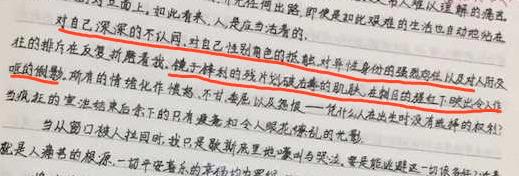 对立面上。如此看来，人是应当活着的。
对自己深深的不认同，对自己性别角色的抵触，对异性身份的强烈向往以及对人际交
往的排斥在反复折磨着我。镜子锋利的残片划破右臂的肌肤，在刺目的猩红下映出令人作
呕的倒影。所有的情绪化作愤怒、不甘、委屈以及怨恨——凭什么人在出生时没有选择的权利？
当疯狂的宣泄结束后余下的只有疲惫和令人眼花缭乱的光影。
当从窗口被人拉回时，我只是歇斯底里地嚎叫与哭泣。要是能逃避这一切
就是人痛苦的根源。一切平安喜乐的